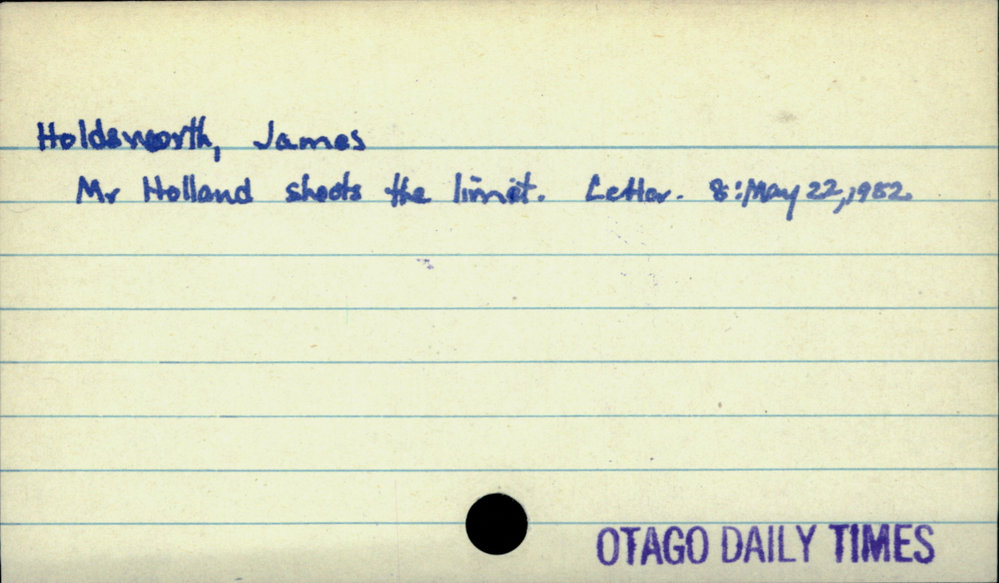 Holdsworth, James
Mr Holland shoots the limit. Letter. 8:May 22,1982
OTAGO DAILY TIMES